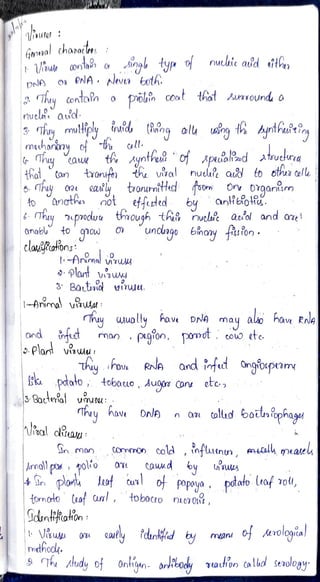 Viruses :
General characters :
1. Viruses contain a single type of nucleic acid either
DNA or RNA. Never both.
2. They contain a protein coat that surrounds a
nucleic acid.
3. They multiply inside living cells using the synthesizing
machinery of the cell.
4. They cause the synthesis of specialized structures
that can transfer the viral nucleic acid to other cells
5. They are easily transmitted from one organism
to another not effected by antibiotics.
6. They reproduce through their nucleic acid and are
unable to grow or undergo binary fission.
Classifications:
1. - Animal viruses
2. Plant viruses
3. Bacterial viruses.
1 - Animal viruses:
They usually have DNA may also have RNA
and infect man, pegion, parrot, cow etc.
2. Plant viruses:
They have RNA and infect Angiosperms
like potato, tobacco, sugar cane etc.,
3. Bacterial viruses:
They have DNA n are called bacteriophages
Viral diseases:
In man common cold, influenza, measels
small pox, polio are caused by viruses
In plants leaf curl of papaya, potato leaf roll,
tomato leaf curl, tobacco necrosis.
Identification:
1. Viruses are easily identified by means of serological
methods.
2. The study of antigen-antibody reaction called serology.